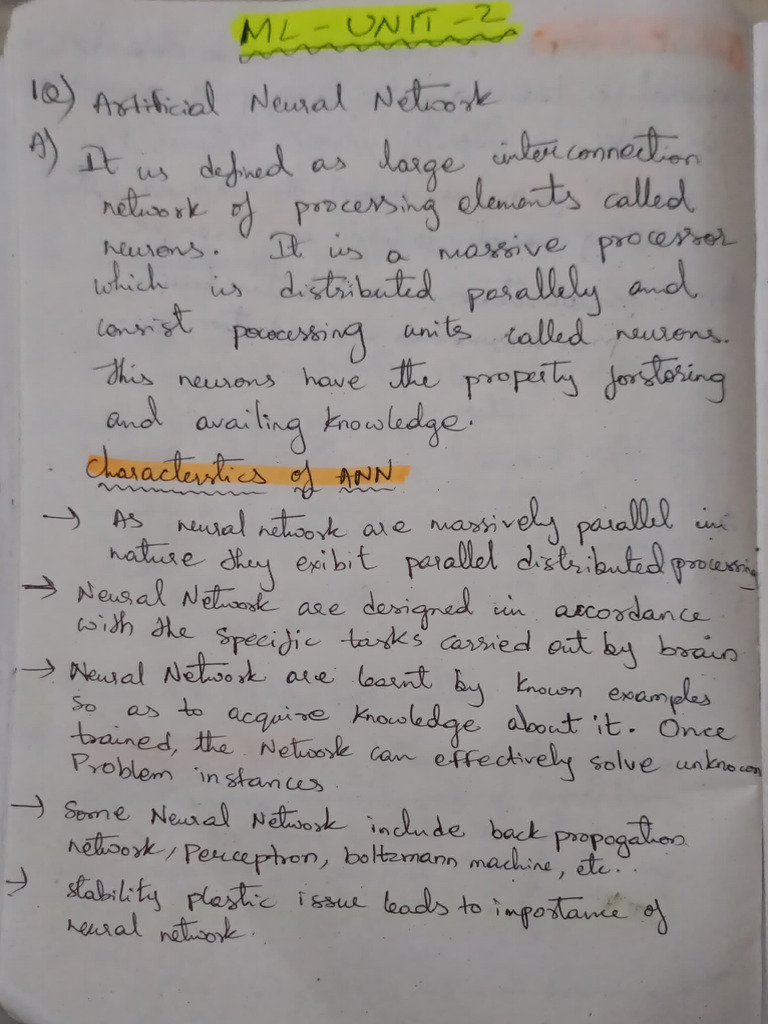 ML - UNIT - 2
1Q) Artificial Neural Network
A) It is defined as large interconnection
network of processing elements called
neurons. It is a massive processor
which is distributed parallely and
consist pocessing units called neurons.
This neurons have the property forstoring
and availing knowledge.
Characterstics of ANN
→ As neural network are massively parallel in
nature they exibit parallel distributed processing
→ Neural Network are designed in accordance
with the specific tasks carried out by brain
→ Neural Network are learnt by known examples
so as to acquire knowledge about it. Once
trained, the Network can effectively solve unknown
Problem instances.
→ Some Neural Network include back propogation
network, Perceptron, boltzmann machine, etc..
→ stability plastic issue leads to importance of
neural network.